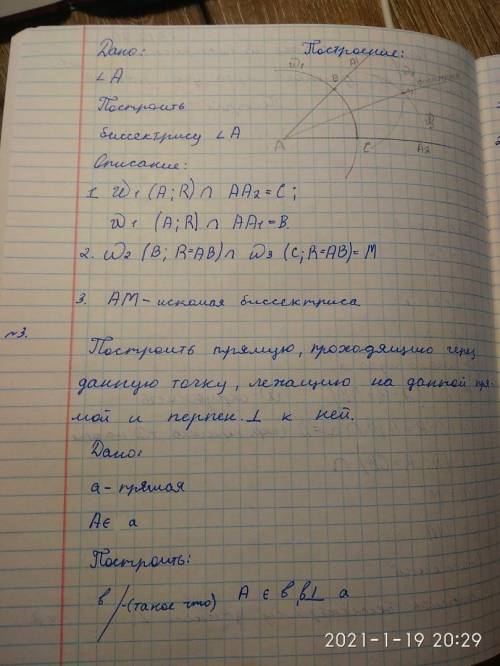 Дано: Построение:
∠A
W₁ B A₁
A C A₂
Построить
биссектрису ∠A
Описание:
1. W₁ (A; R) ∩ AA₂ = C;
W₁ (A; R) ∩ AA₁ = B.
2. W₂ (B; R=AB) ∩ W₃ (C; R=AB) = M
3. AM - искомая биссектриса
№3.
Построить прямую, проходящию через
данную точку, лежащию на данной пря-
мой и перпен. ⊥ к ней.
Дано:
a - прямая
A ∈ a
Построить:
в /-(такое что) A ∈ в, в ⊥ a
2021-1-19 20:29